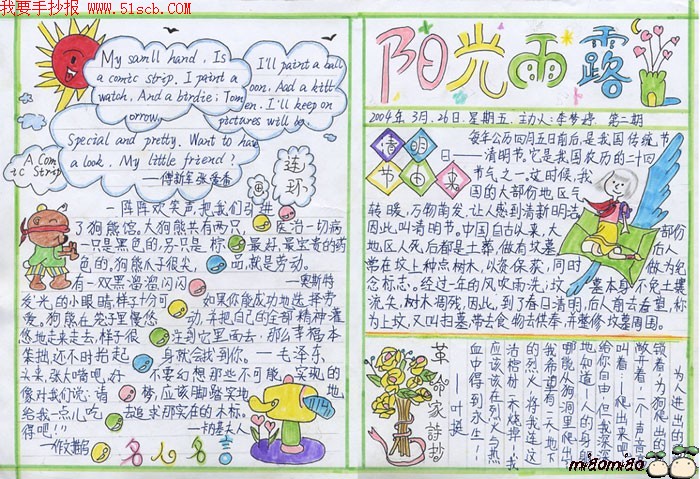 我要手抄报
www.51scb.com
My samll hand. Is
a comic strip. I paint a
watch. And a birdie; Tom
orrow,
I'll paint a ball
oon. Aad a kitt
en. I'll keep on
pictures will be
Special and pretty. Want to have
a look. My little friend?
A Com
ic Strip
连
环
一阵阵欢笑声,把我们引进
了狗熊馆。大狗熊共有两只
一只是黑色的,另一只是棕
色的。狗熊个子很
有一双黑溜溜闪闪
发光的小眼睛,样子十分可
爱。狗熊在笼子里慢悠
悠地走来走去,样子很
还不时抬起
头来,张大嘴吧,好
像对我们说:请
给我一点儿吃
得吧!!
医治一切病
最好、最宝贵的药
品,就是劳动。
——奥斯特
如果你能成功地选择劳
动,并把自己的全部精神灌
注到它里面去,那么幸福本
身就会找到你。——毛泽东
不要幻想那些不可能实现的
梦,应该脚踏实地地,
去追求那实在的木标。
名人名言
阳光雨露
2004年3月26日星期五 主办人:李梦婷 第二期
清明
节由来
每年公历四月五日前后,是我国传统节
日——清明节。它是我国农历的二十四
节气之一。这时候,我
国的大部份地区气
转暖,万物萌发,让人感到清新明洁
因此叫清明节。中国自古以来,大
部份
地区人死后都是土葬,做有坟墓
后人
常在坟上种点树木,以资保荻,同时
做为纪
念标志。经过一年的风吹雨洗,坟
墓本身不免土壤
流失,树木凋残,因此,到了春日清明,后人前去看望,称
为上坟,又叫扫墓,带去食物去供奉,并整修坟墓周围。
革命家詩抄
——叶挺
为人进出的
为狗爬出的
一个声音高
叫着:爬出来吧
给你自由!但我深深
地知道——人的身躯
哪能从狗洞里爬出
我希望有一天地下
的烈火,将我连这
活棺材一齐烧掉!我
应该在烈火与热
血中得到永生!
miaomiao